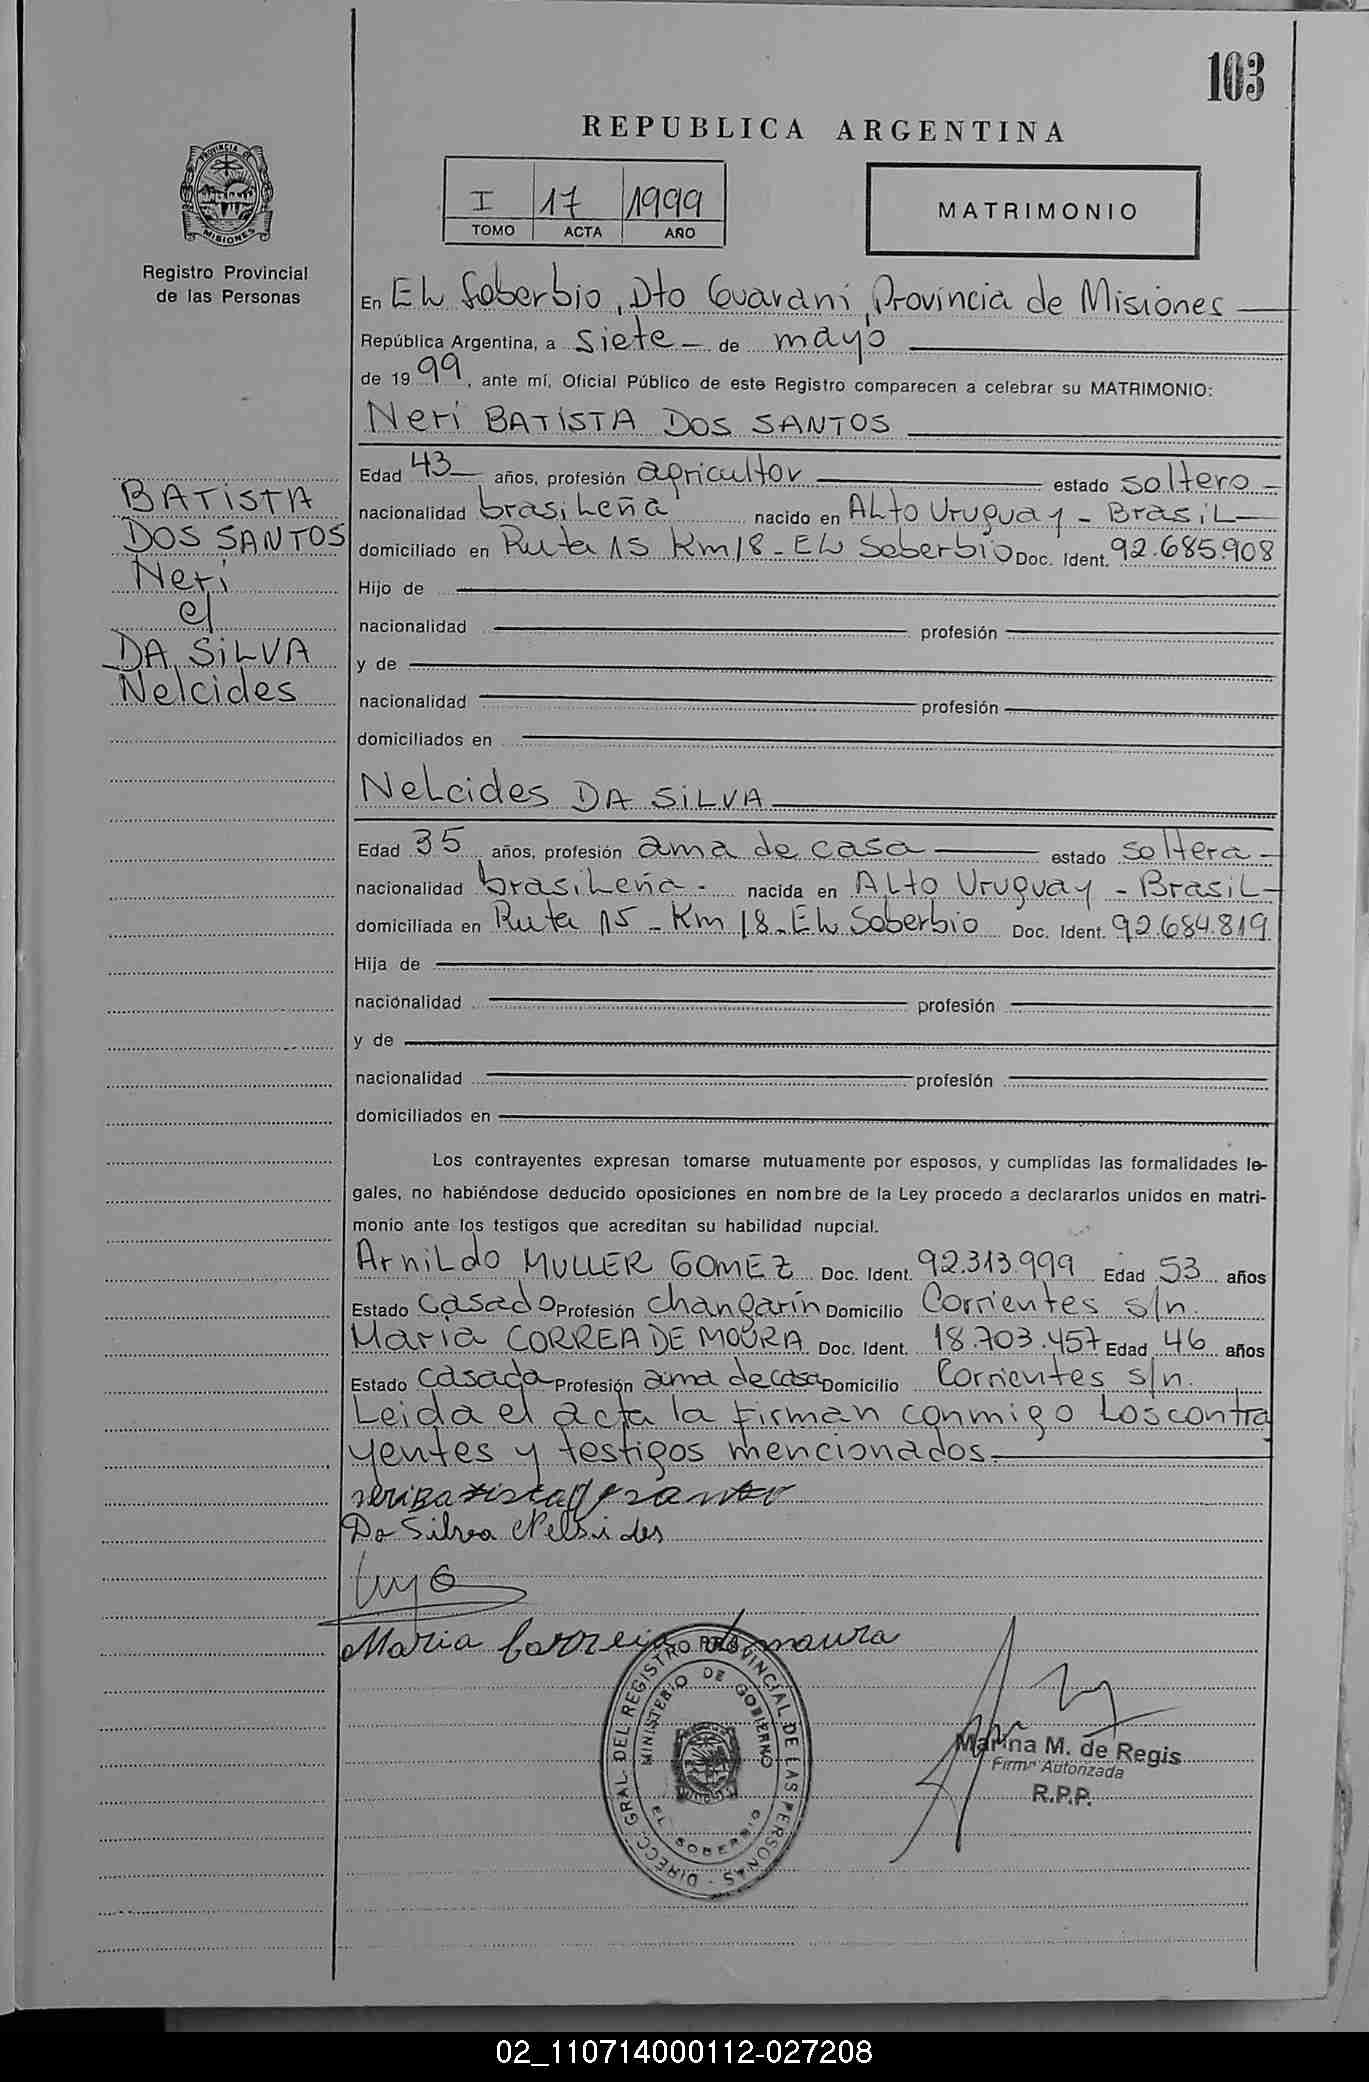 103
REPUBLICA ARGENTINA
I 17 1999
TOMO ACTA AÑO
MATRIMONIO
PROVINCIA DE MISIONES
Registro Provincial
de las Personas
En El Soberbio, Dto Guaraní, Provincia de Misiones
República Argentina, a siete de mayo
de 1999, ante mí, Oficial Público de este Registro comparecen a celebrar su MATRIMONIO:
Neri BATISTA DOS SANTOS
Edad 43 años, profesión agricultor estado soltero
nacionalidad brasileña nacido en Alto Uruguay - Brasil
domiciliado en Ruta 15 Km 18 - El Soberbio Doc. Ident. 92.685.908
Hijo de
nacionalidad profesión
y de
nacionalidad profesión
domiciliados en
BATISTA
DOS SANTOS
Neri
c/
DA SILVA
Nelcides
Nelcides DA SILVA
Edad 35 años, profesión ama de casa estado soltera
nacionalidad brasileña - nacida en Alto Uruguay - Brasil
domiciliada en Ruta 15 - Km 18 - El Soberbio Doc. Ident. 92.684.819
Hija de
nacionalidad profesión
y de
nacionalidad profesión
domiciliados en
Los contrayentes expresan tomarse mutuamente por esposos, y cumplidas las formalidades le-
gales, no habiéndose deducido oposiciones en nombre de la Ley procedo a declararlos unidos en matri-
monio ante los testigos que acreditan su habilidad nupcial.
Arnildo MULLER GOMEZ Doc. Ident. 92.313.999 Edad 53 años
Estado casado Profesión changarín Domicilio Corrientes s/n.
María CORREA DE MOURA Doc. Ident. 18.703.457 Edad 46 años
Estado casada Profesión ama de casa Domicilio Corrientes s/n.
Leida el acta la firman conmigo los contra
yentes y testigos mencionados.
neri Batista santo
Da Silva Nelsides
Maria Correia de moura
DIRECC. GRAL. DEL REGISTRO PROVINCIAL DE LAS PERSONAS
MINISTERIO DE GOBIERNO
EL SOBERBIO
Marina M. de Regis
Firma Autorizada
R.P.P.
02_110714000112-027208